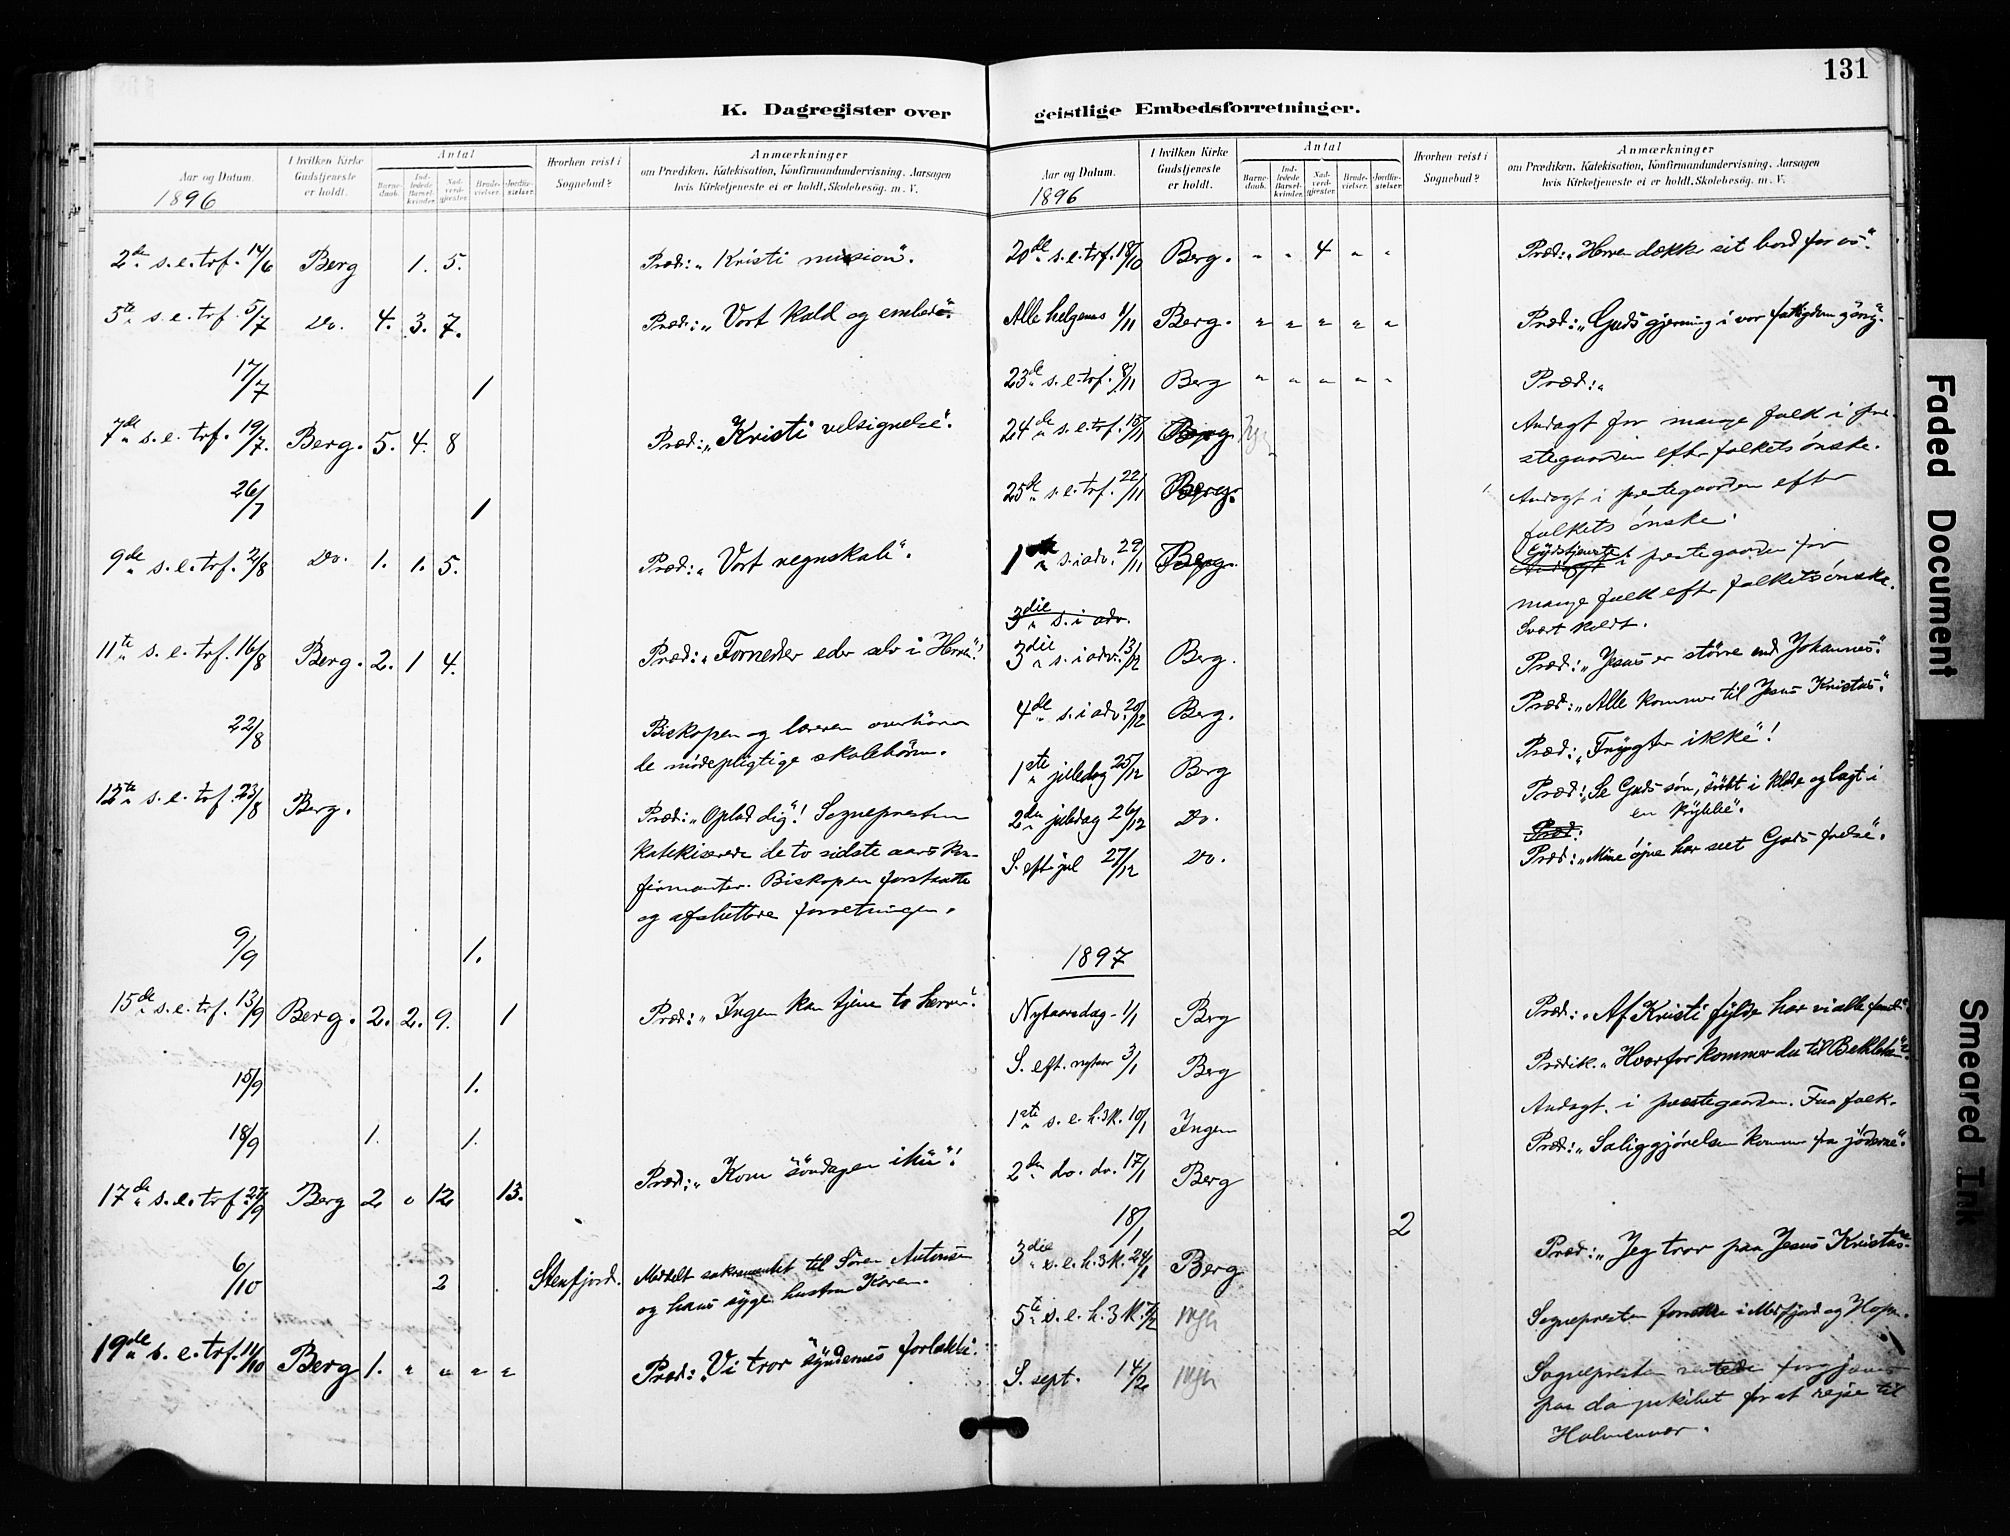 131
K. Dagregister over geistlige Embedsforretninger.
Aar og Datum.
I hvilken Kirke Gudstjeneste er holdt.
Antal
Barnedaab.
Indledede Barselkvinder.
Nadverdgjester.
Brudevielser.
Jordfæstelser.
Hvorhen reist i Sognebud?
Anmærkninger
om Prædiken, Katekisation, Konfirmandundervisning, Aarsagen
hvis Kirketjeneste ei er holdt, Skolebesøg. m. V.
1896
2de s. e. trf. 14/6 Berg 1. 5. Præd: "Kristi mission".
5te s. e. trf. 5/7 Do. 4. 3. 7. Præd: "Vort kald og embede".
17/7 1
7de s. e. trf. 19/7. Berg. 5. 4. 8 Præd: "Kristi velsignelse".
26/7 1
9de s. e. trf. 2/8 Do. 1. 1. 5. Præd: "Vort regnskab".
11te s. e. trf. 16/8 Berg. 2. 1 4. Præd: "Fornedrer eder selv i Herren"!
22/8 Biskopen og læreren overhørte
de mødepligtige skolebørn.
12te s. e. trf. 23/8 Berg. Præd: "Oplad dig"! Sognepresten
katekiserede de to sidste aars kon-
firmanter. Biskopen forsatte
og afsluttere forretningen.
9/9 1.
15de s. e. trf. 13/9 Berg. 2. 2. 9. 1 Præd: "Ingen kan tjene to herrer".
15/9 1.
18/9 1. 1.
17de s. e. trf. 27/9 Berg 2 " 12 13. Præd: "Kom søndagen ihu"!
6/10 2 Stenfjord. Meddelt sakramentet til Sören Antonsen
og hans syge hustru Karen.
19de s. e. trf. 11/10 Berg 1. " " " " Præd: "Vi tror syndernes forladelse".
Aar og Datum.
I hvilken Kirke Gudstjeneste er holdt.
Antal
Barnedaab.
Indledede Barselkvinder.
Nadverdgjester.
Brudevielser.
Jordfæstelser.
Hvorhen reist i Sognebud?
Anmærkninger
om Prædiken, Katekisation, Konfirmandundervisning, Aarsagen
hvis Kirketjeneste ei er holdt, Skolebesøg. m. V.
1896
20de s. e. trf. 18/10 Berg. " " 4 " " Præd: "Herren dækker sit bord for os".
Alle helgens 1/11 Berg. " " " " " Præd: "Guds gjerning i vor fattigdom".
23de s. e. trf. 8/11 Berg " " " " " Præd: "
24de s. e. trf. 15/11 Berg. Andagt for mange folk i pre-
stegaarden efter folkets ønske.
25de s. e. trf. 22/11 Berg. Andagt i prestegaarden efter
folkets ønske.
1ste s. i adv. 29/11 Berg. Gudstjeneste Andagt i prestegaarden for
mange folk efter folkets ønske.
Svært koldt.
3die s. i adv.
3die s. i adv. 13/12 Berg. Præd: "Jesus er större end Johannes".
4de s. i adv. 20/12 Berg. Præd: "Alle kommer til Jesus Kristus".
1ste juledag 25/12 Berg Præd: "Frygter ikke"!
2den juledag 26/12 Do. Præd: "Se Guds søn, svøbt i klæde og lagt i
en krybbe".
Præd:
S. eft. jul 27/12 Do. Præd: "Mine øine har seet Guds frelse".
1897
Nytaarsdag 1/1 Berg Præd: "Af Kristi fylde har vi alle faaet"
S. eft. nytaar 3/1 Berg Prædik. "Hvorfor kommer du til Betlehem"?
1ste s. e. h. 3 K. 10/1 Ingen Andagt i prestegaarden. Faa folk.
2den do. do. 17/1 Berg Præd: "Saliggjørelsen kommer fra jøderne".
18/1 2
3die s. e. h. 3 K. 24/1 Berg Præd: "Jeg tror paa Jesus Kristus".
5te s. e. h. 3 K. 7/2 Sognepresten forrettede i Mefjord og Hopen.
S. sept. 14/2 Sognepresten ventede forgjæves
paa dampskibet for at reise til
Holmenvær.
Faded Document
Smeared Ink